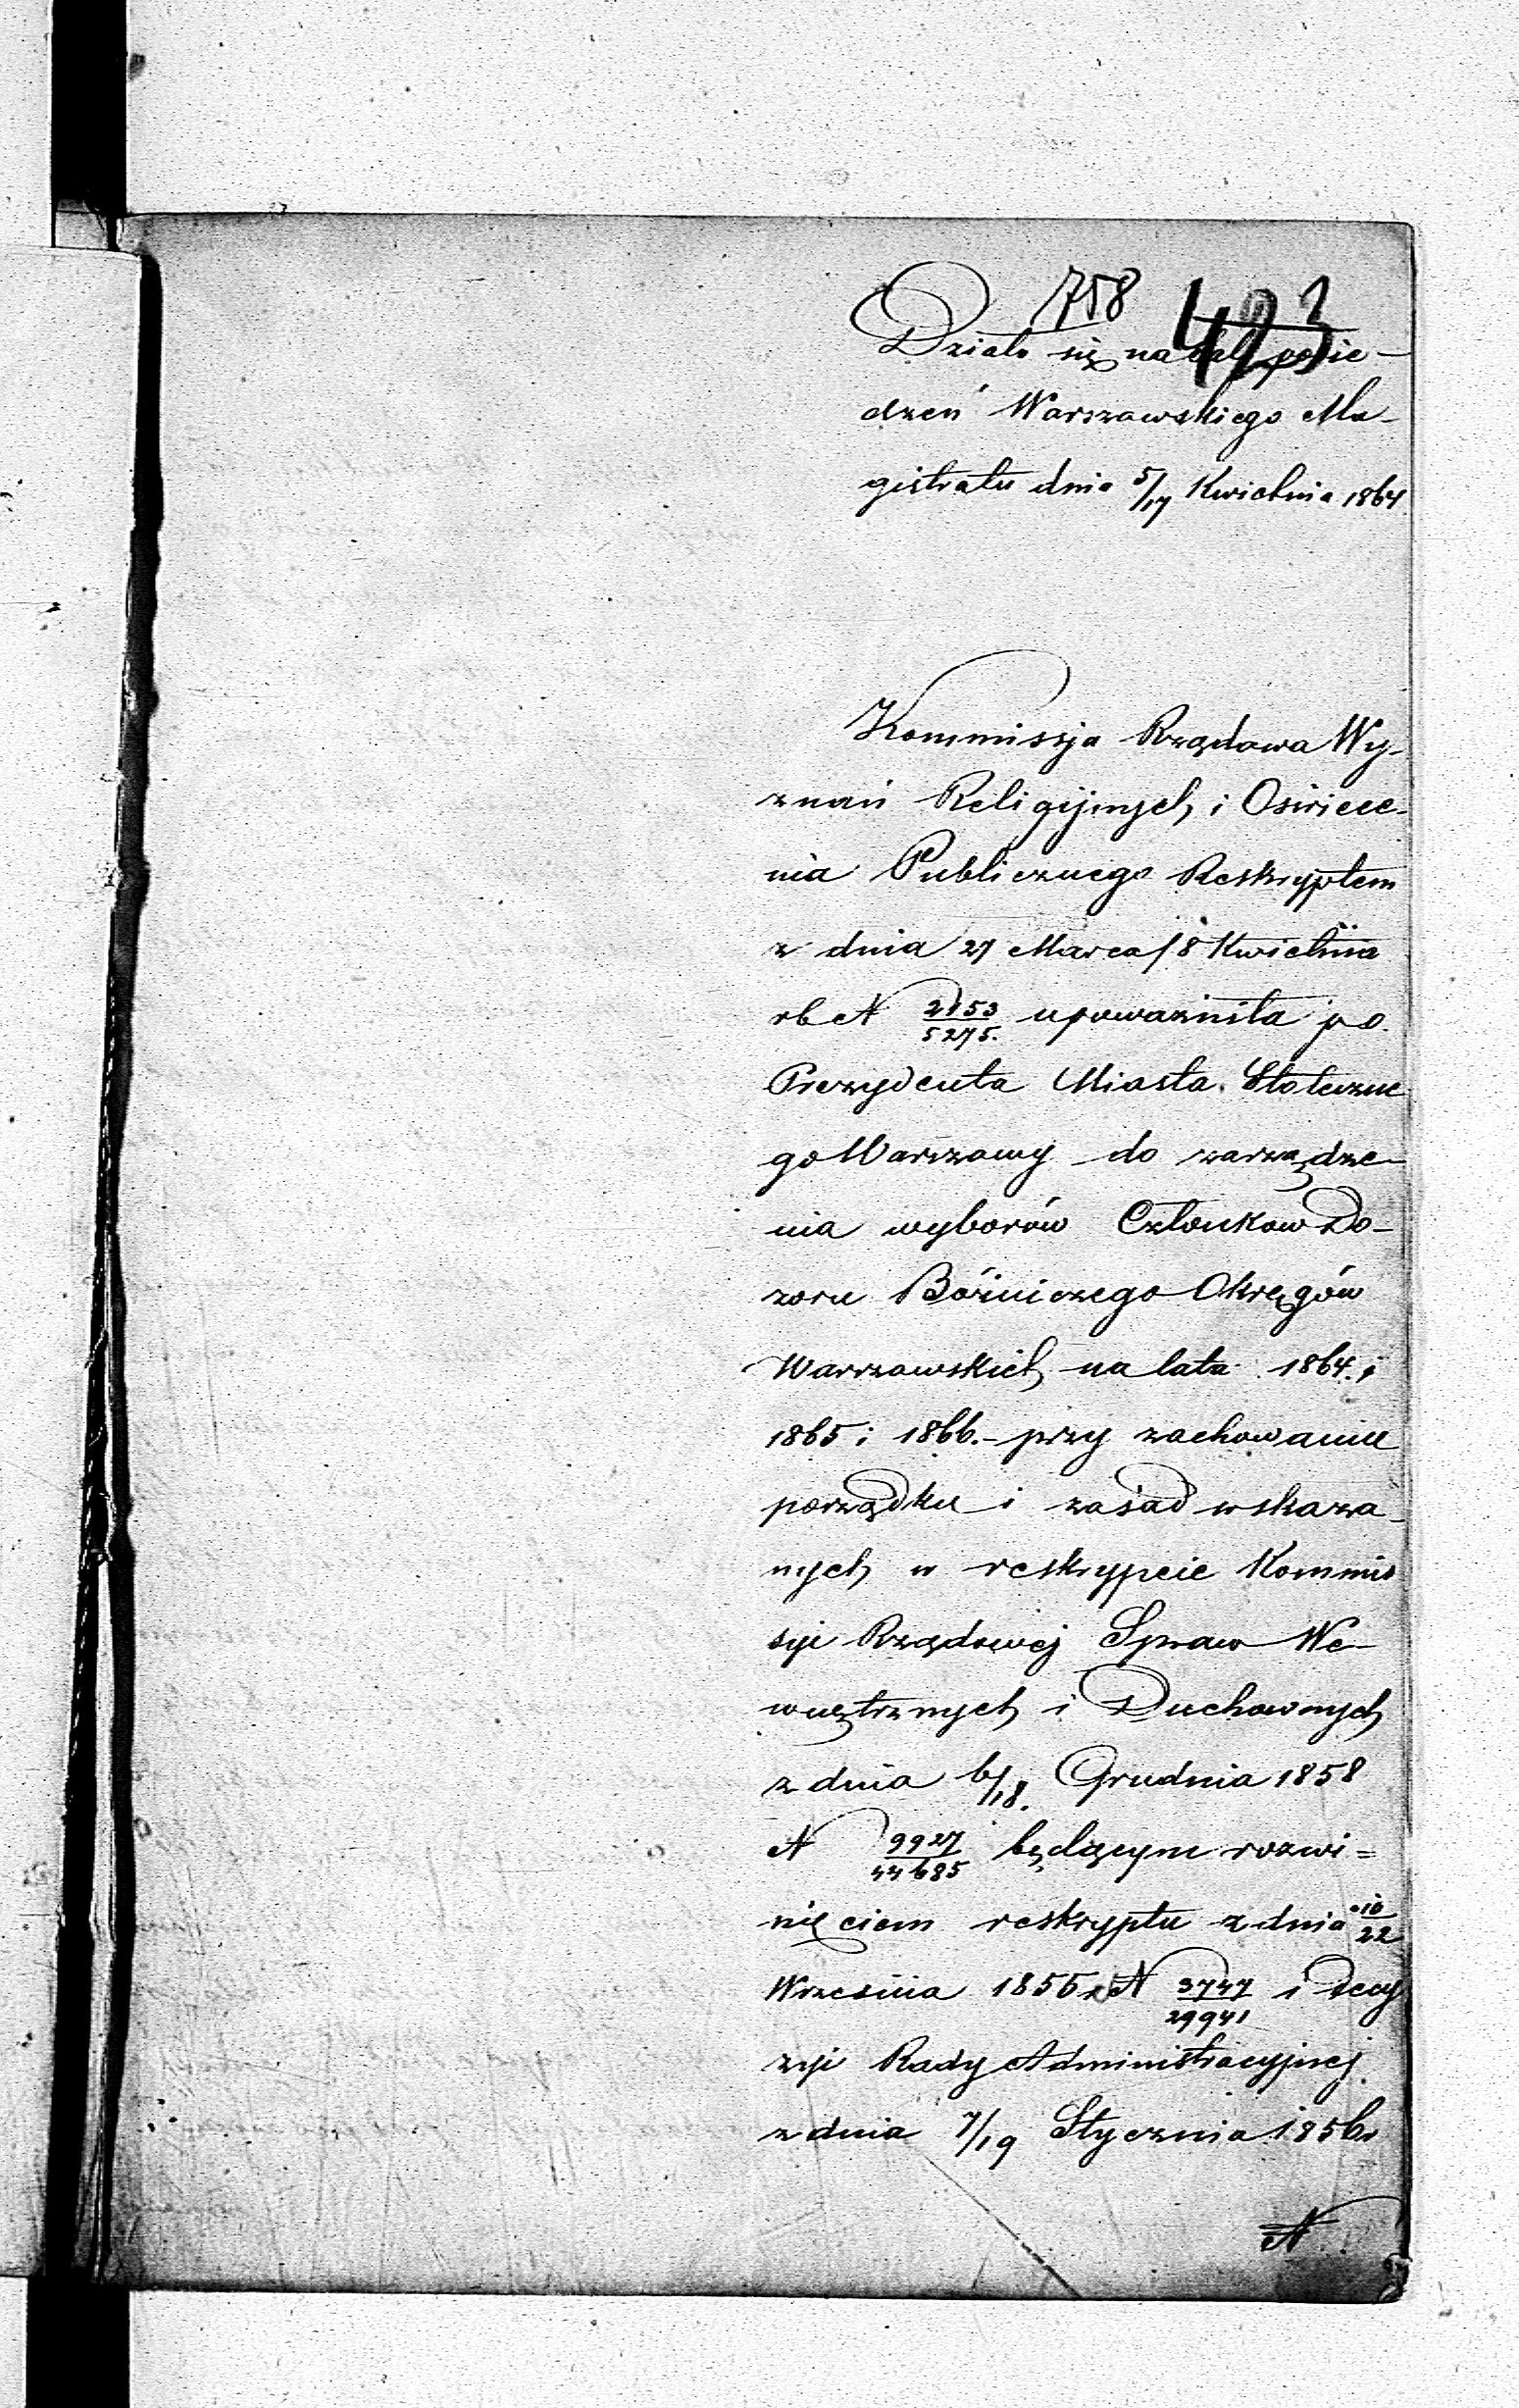 758 423
Działo się na Sali posie-
dzeń Warszawskiego Ma-
gistratu dnia 5/17 Kwietnia 1864
Kommissja Rządowa Wy-
znań Religijnych i Oświece-
nia Publicznego Reskryptem
z dnia 27 Marca / 8 Kwietnia
rb N 2153/5275. upoważniła po.
Prezydenta Miasta Stołeczne
go Warszawy do zarządze-
nia wyborów Członków Do-
zoru Bóźniczego Okręgów
Warszawskich na lata 1864. i
1865 i 1866.- przy zachowaniu
porządku i zasad wskaza-
nych w reskrypcie Kommis
syi Rządowej Spraw We-
wnętrznych i Duchownych
z dnia 6/18. Grudnia 1858
N 9927/44685 będącym rozwi=
nięciem reskryptu z dnia 10/22
Września 1855 r N 3747/29941 i decy
zyi Rady Administracyjnej
z dnia 7/19 Stycznia 1856r
N